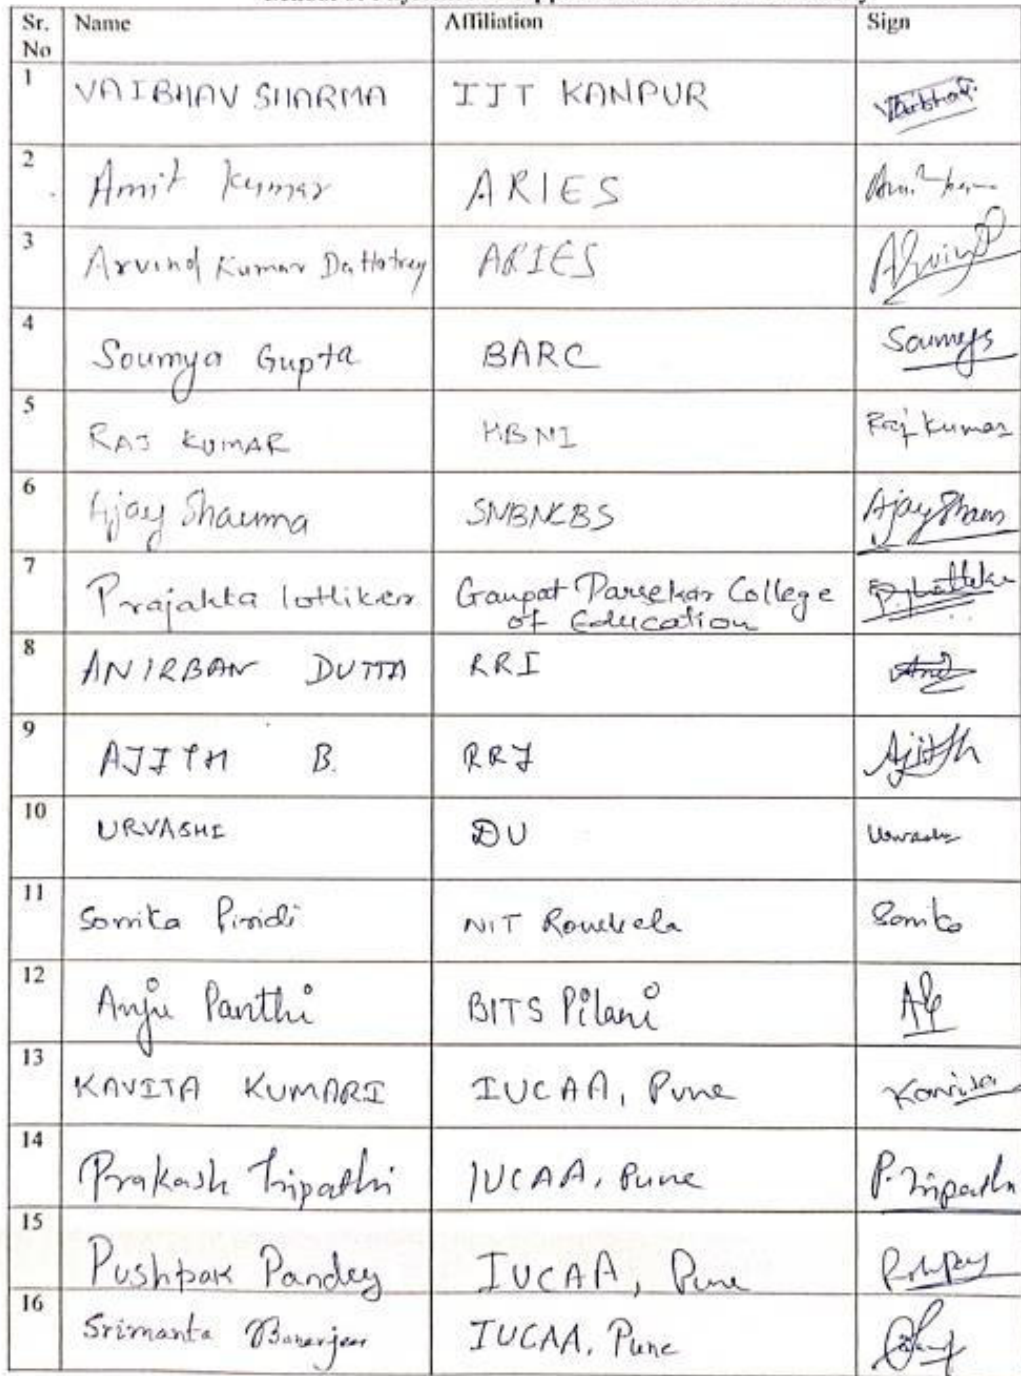 Sr. No Name Affiliation Sign
1 VAIBHAV SHARMA IIT KANPUR Vaibhav
2 Amit Kumar ARIES Amit
3 Arvind Kumar Dattatrey ARIES Arvind
4 Soumya Gupta BARC Soumya
5 RAJ KUMAR HBNI Raj Kumar
6 Ajay Sharma SNBNCBS Ajay Sharm
7 Prajakta lotliker Ganpat Parsekar College
of Education
8 ANIRBAN DUTTA RRI
9 AJITH B. RRI Ajith
10 URVASHI DU Urvashi
11 Somika Piridi NIT Rourkela Somika
12 Anju Panthi BITS Pilani
13 KAVITA KUMARI IUCAA, Pune Kavita
14 Prakash Tripathi IUCAA, Pune P. Tripathi
15 Pushpak Pandey IUCAA, Pune
16 Srimanta Banerjee IUCAA, Pune